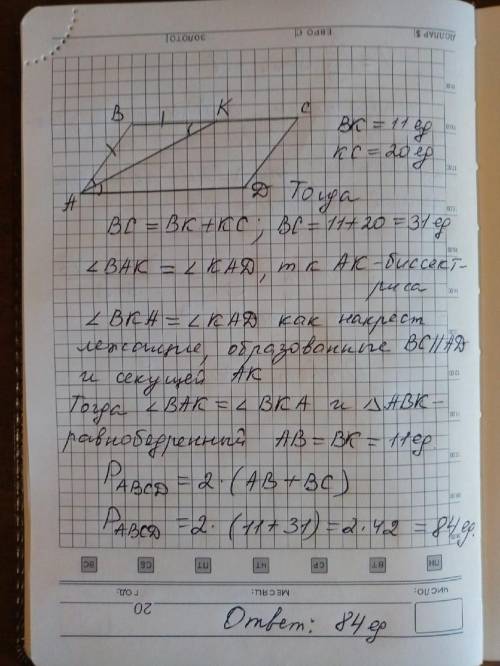 ДОЛЛАР $
ЕВРО €
ЗОЛОТО
B K C
A D
BK = 11 ед
KC = 20 ед
Тогда
BC = BK + KC; BC = 11 + 20 = 31 ед
∠BAK = ∠KAD, т к AK - биссект-
риса
∠BKA = ∠KAD как накрест
лежащие, образованные BC||AD
и секущей AK
Тогда ∠BAK = ∠BKA и △ABK -
равнобедренный AB = BK = 11 ед.
P_ABCD = 2 · (AB + BC)
P_ABCD = 2 · (11 + 31) = 2 · 42 = 84 ед.
ВС СБ ПТ ЧТ СР ВТ ПН
20 ГОД: МЕСЯЦ: ЧИСЛО:
Ответ: 84 ед